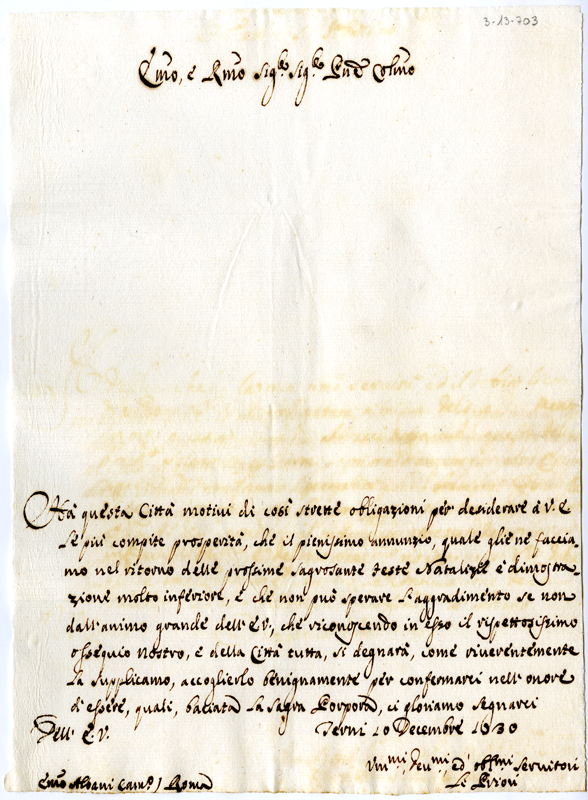 3-13-703
Emo, e Rmo Sigre Sigre Pne Colmo
Hà questa Città motivi di così strette obligazioni per desiderare à V. E.
le più compite prosperità, che il pienissimo annunzio, quale gliene faccia-
mo nel ritorno delle prossime sagrosante feste Natalizie è dimostra-
zione molto inferiore, e che non può sperare l'aggradimento se non
dall'animo grande dell'E.V., che riconoscendo in esso il rispettosissimo
ossequio nostro, e della Città tutta, si degnarà, come riverentemente
la supplicamo, accoglierlo benignamente per confermarci nell'onore
di essere, quali, baciata la sagra Porpora, ci gloriamo segnarci
Dell' E.V. Terni 20 Decembre 1730
Umi, Devmi, ed' obbmi Servitori
Emo Albani Camo / Roma Li Priori